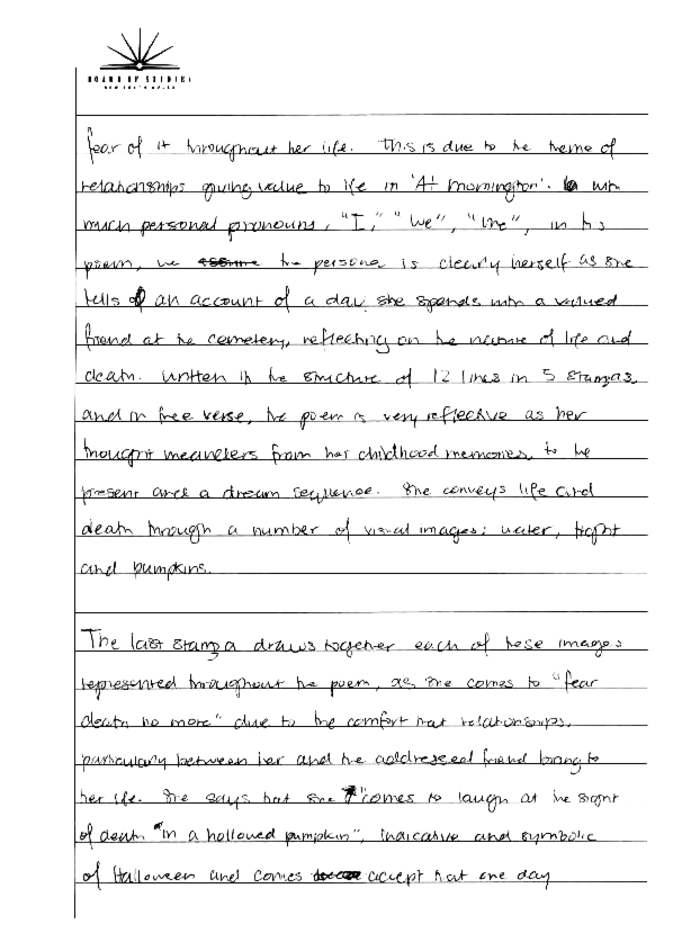 BOARD OF STUDIES
NEW SOUTH WALES
fear of it throughout her life. This is due to the theme of
relationships giving value to life in 'At Mornington'. With
much personal pronouns, "I," "We", "me", in this
poem, we assume the persona is clearly herself as she
tells of an account of a day she spends with a valued
friend at the cemetery, reflecting on the nature of life and
death. Written in the structure of 12 lines in 5 stanzas,
and in free verse, the poem is very reflective as her
thought meanders from her childhood memories, to the
present and a dream sequence. She conveys life and
death through a number of visual images; water, light
and pumpkins.
The last stanza draws together each of these images
represented throughout the poem, as she comes to "fear
death no more" due to the comfort that relationships,
particularly between her and the addressed friend bring to
her life. She says that she "comes to laugh at the sight
of death "in a hollowed pumpkin", indicative and symbolic
of Halloween and comes accept that one day